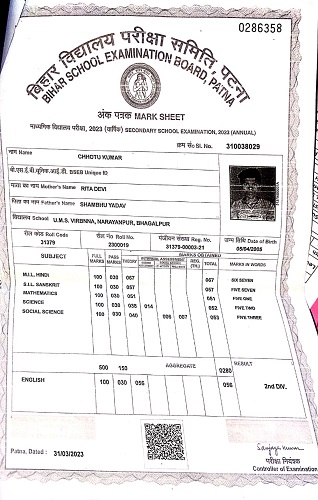 0286358
बिहार विद्यालय परीक्षा समिति, पटना
BIHAR SCHOOL EXAMINATION BOARD, PATNA
अंक पत्रक MARK SHEET
माध्यमिक विद्यालय परीक्षा, 2023 (वार्षिक) SECONDARY SCHOOL EXAMINATION, 2023 (ANNUAL)
क्रम सं० Sl. No. 310038029
नाम Name CHHOTU KUMAR
बी.एस.ई.बी.यूनिक.आई.डी. BSEB Unique ID
माता का नाम Mother's Name RITA DEVI
पिता का नाम Father's Name SHAMBHU YADAV
विद्यालय School U.M.S. VIRBNNA, NARAYANPUR, BHAGALPUR
रौल कोड Roll Code रौल नं० Roll No. पंजीयन संख्या Reg. No. जन्म तिथि Date of Birth
31379 2300019 31379-00003-21 05/04/2005
SUBJECT FULL MARKS PASS MARKS MARKS OBTAINED MARKS IN WORDS
THEORY INTERNAL ASSESSMENT REG. TOTAL
M.I.L. HINDI 100 030 067 067 SIX SEVEN
S.I.L. SANSKRIT 100 030 057 057 FIVE SEVEN
MATHEMATICS 100 030 051 051 FIVE ONE
SCIENCE 100 030 038 014 052 FIVE TWO
SOCIAL SCIENCE 100 030 040 006 007 053 FIVE THREE
500 150 AGGREGATE 0280 RESULT
ENGLISH 100 030 056 056 2nd DIV.
Patna, Dated : 31/03/2023
Sanjay Kumar
परीक्षा नियंत्रक
Controller of Examination